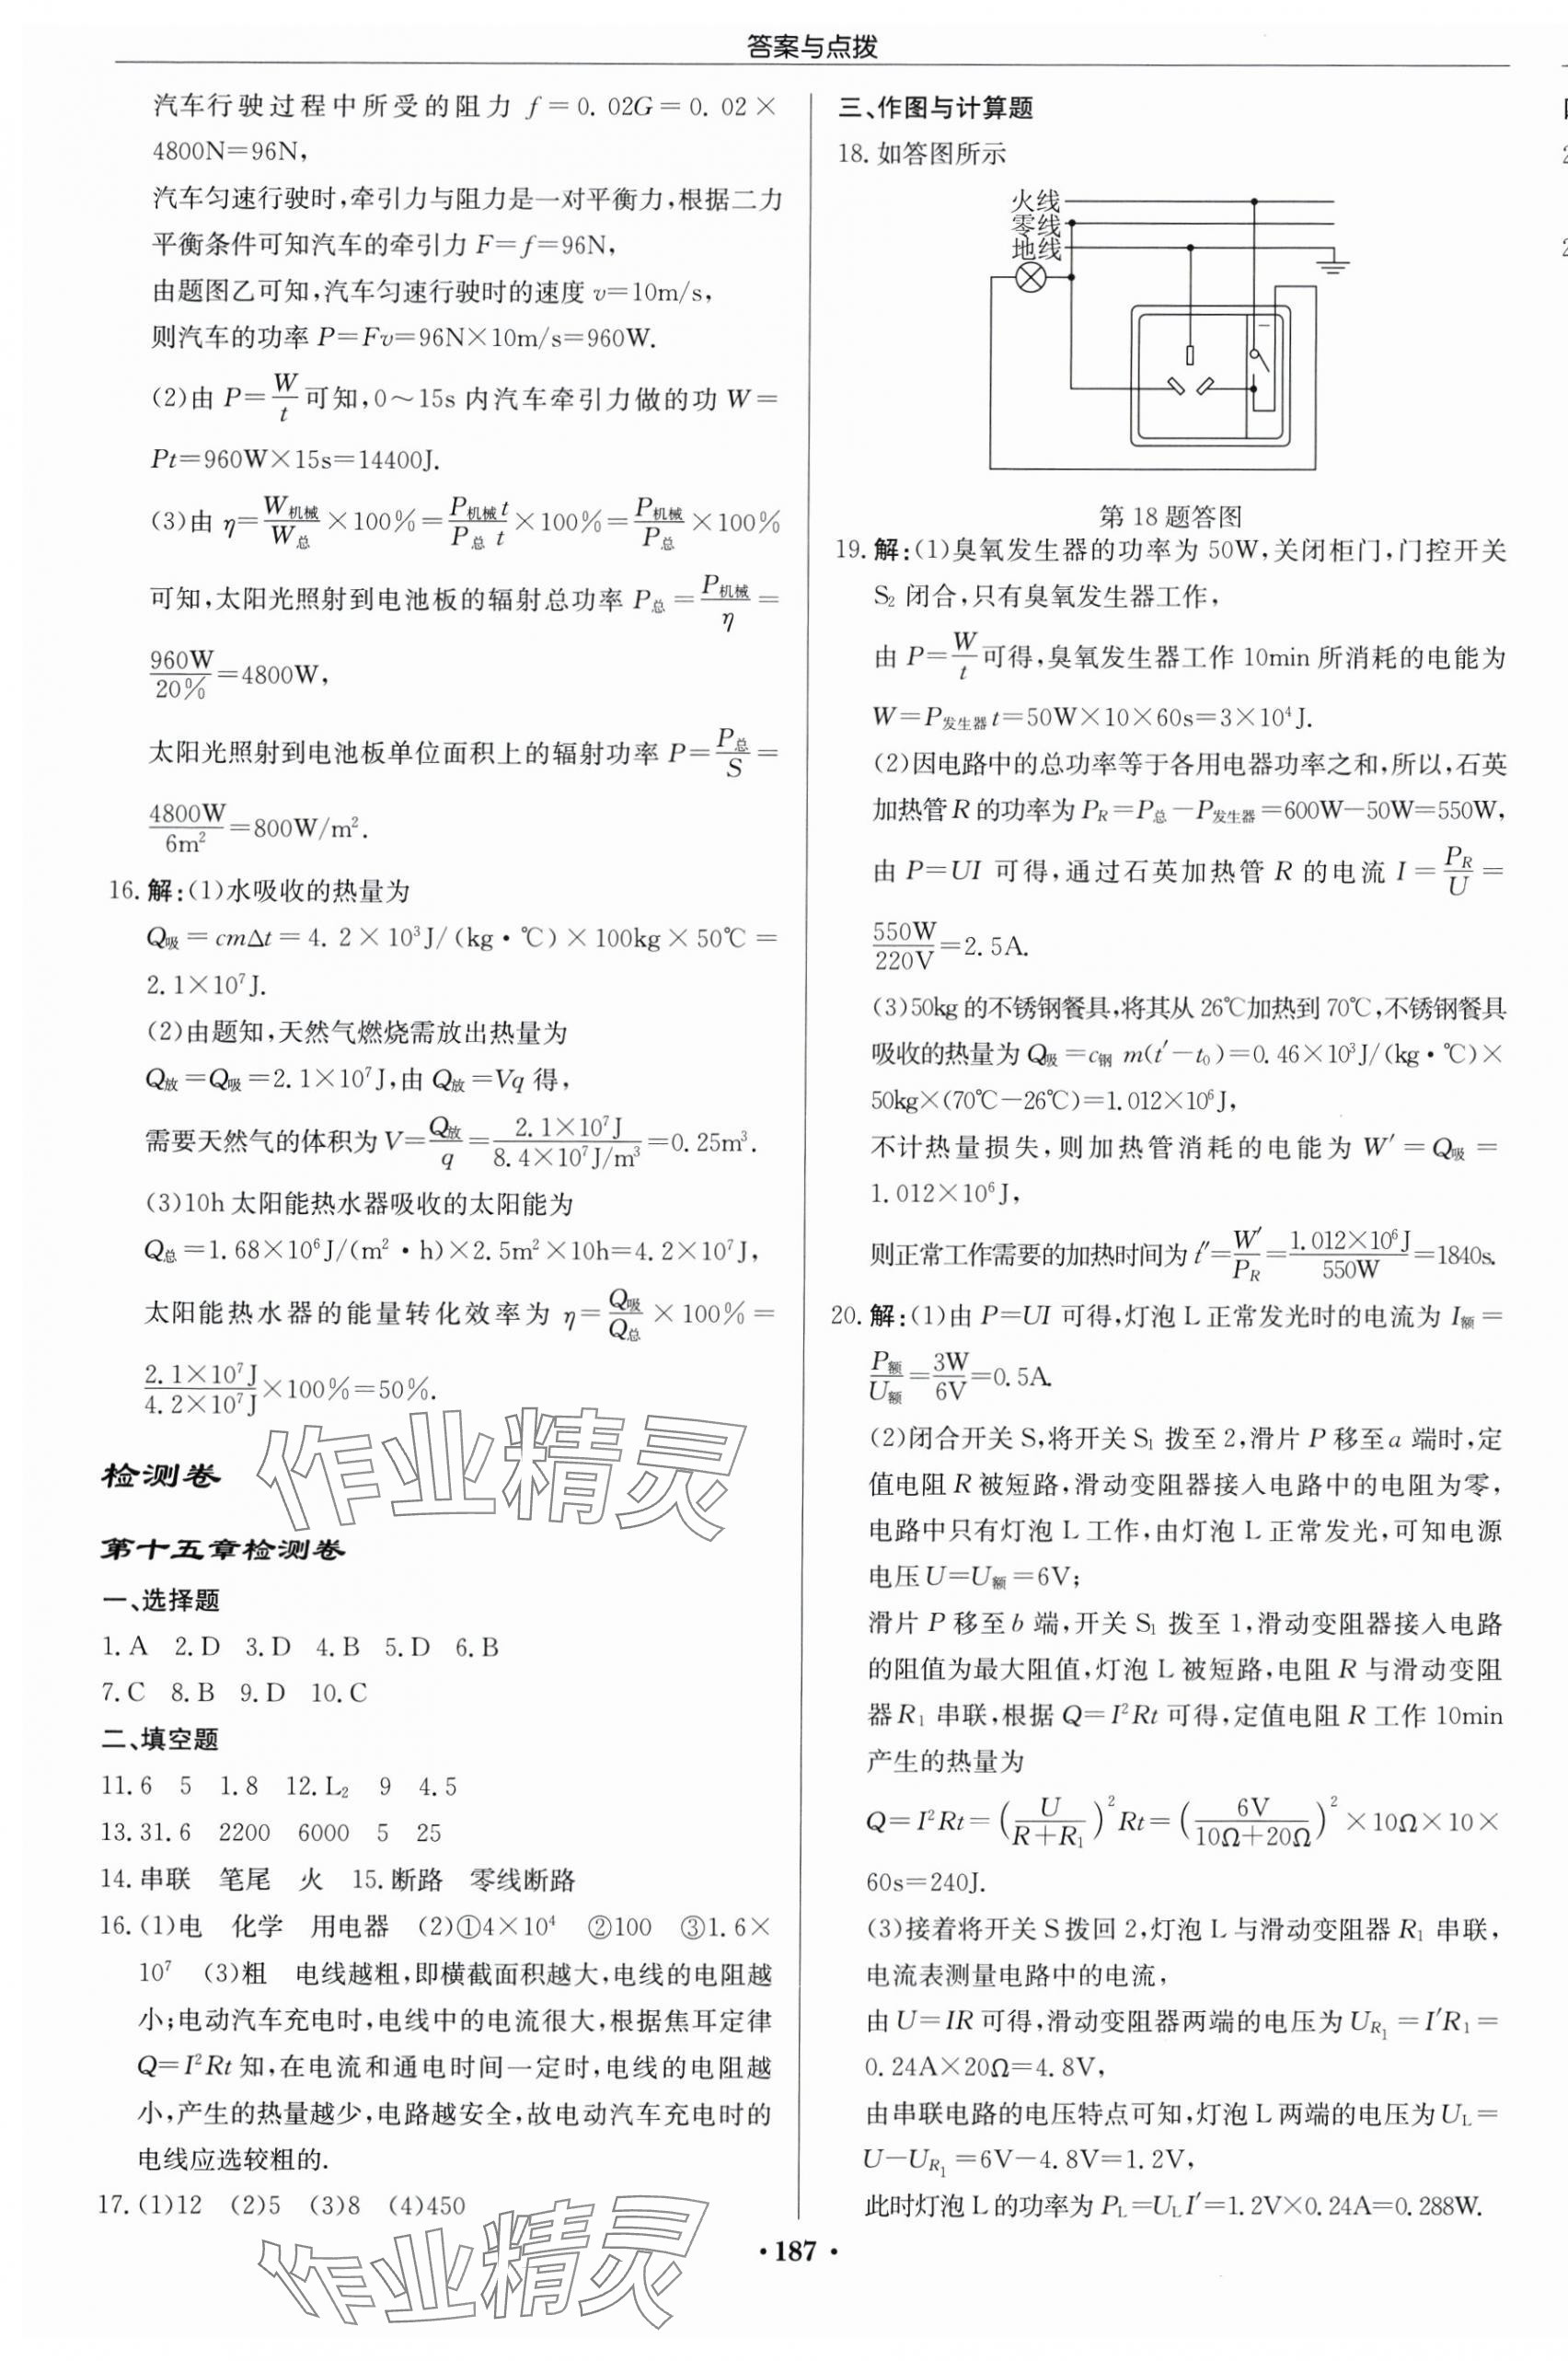 答案与点拨
汽车行驶过程中所受的阻力 f=0.02G=0.02×
4800N=96N,
汽车匀速行驶时,牵引力与阻力是一对平衡力,根据二力
平衡条件可知汽车的牵引力 F=f=96N,
由题图乙可知,汽车匀速行驶时的速度 v=10m/s,
则汽车的功率 P=Fv=96N×10m/s=960W.
(2)由 P=W/t 可知,0～15s 内汽车牵引力做的功 W=
Pt=960W×15s=14400J.
(3)由 η=W机械/W总×100%=P机械t/P总t×100%=P机械/P总×100%
可知,太阳光照射到电池板的辐射总功率 P总=P机械/η=
960W/20%=4800W,
太阳光照射到电池板单位面积上的辐射功率 P=P总/S=
4800W/6m²=800W/m².
16.解:(1)水吸收的热量为
Q吸=cmΔt=4.2×10³J/(kg·℃)×100kg×50℃=
2.1×10⁷J.
(2)由题知,天然气燃烧需放出热量为
Q放=Q吸=2.1×10⁷J,由 Q放=Vq 得,
需要天然气的体积为 V=Q放/q=2.1×10⁷J/8.4×10⁷J/m³=0.25m³.
(3)10h 太阳能热水器吸收的太阳能为
Q总=1.68×10⁶J/(m²·h)×2.5m²×10h=4.2×10⁷J,
太阳能热水器的能量转化效率为 η=Q吸/Q总×100%=
2.1×10⁷J/4.2×10⁷J×100%=50%.
作业精灵
检测卷
第十五章检测卷
一、选择题
1.A 2.D 3.D 4.B 5.D 6.B
7.C 8.B 9.D 10.C
二、填空题
11.6 5 1.8 12.L₂ 9 4.5
13.31.6 2200 6000 5 25
14.串联 笔尾 火 15.断路 零线断路
16.(1)电 化学 用电器 (2)①4×10⁴ ②100 ③1.6×
10⁷ (3)粗 电线越粗,即横截面积越大,电线的电阻越
小;电动汽车充电时,电线中的电流很大,根据焦耳定律
Q=I²Rt 知,在电流和通电时间一定时,电线的电阻越
小,产生的热量越少,电路越安全,故电动汽车充电时的
电线应选较粗的.
17.(1)12 (2)5 (3)8 (4)450
作业精灵
三、作图与计算题
18.如答图所示
火线
零线
地线
第 18 题答图
19.解:(1)臭氧发生器的功率为 50W,关闭柜门,门控开关
S₂ 闭合,只有臭氧发生器工作,
由 P=W/t 可得,臭氧发生器工作 10min 所消耗的电能为
W=P发生器t=50W×10×60s=3×10⁴J.
(2)因电路中的总功率等于各用电器功率之和,所以,石英
加热管 R 的功率为 P_R=P总-P发生器=600W-50W=550W,
由 P=UI 可得,通过石英加热管 R 的电流 I=P_R/U=
550W/220V=2.5A.
(3)50kg 的不锈钢餐具,将其从 26℃加热到 70℃,不锈钢餐具
吸收的热量为 Q吸=c钢 m(t′-t₀)=0.46×10³J/(kg·℃)×
50kg×(70℃-26℃)=1.012×10⁶J,
不计热量损失,则加热管消耗的电能为 W′=Q吸=
1.012×10⁶J,
则正常工作需要的加热时间为 t″=W′/P_R=1.012×10⁶J/550W=1840s.
20.解:(1)由 P=UI 可得,灯泡 L 正常发光时的电流为 I额=
P额/U额=3W/6V=0.5A.
(2)闭合开关 S,将开关 S₁ 拨至 2,滑片 P 移至 a 端时,定
值电阻 R 被短路,滑动变阻器接入电路中的电阻为零,
电路中只有灯泡 L 工作,由灯泡 L 正常发光,可知电源
电压 U=U额=6V;
滑片 P 移至 b 端,开关 S₁ 拨至 1,滑动变阻器接入电路
的阻值为最大阻值,灯泡 L 被短路,电阻 R 与滑动变阻
器 R₁ 串联,根据 Q=I²Rt 可得,定值电阻 R 工作 10min
产生的热量为
Q=I²Rt=(U/(R+R₁))²Rt=(6V/(10Ω+20Ω))²×10Ω×10×
60s=240J.
(3)接着将开关 S 拨回 2,灯泡 L 与滑动变阻器 R₁ 串联,
电流表测量电路中的电流,
由 U=IR 可得,滑动变阻器两端的电压为 U_R₁=I′R₁=
0.24A×20Ω=4.8V,
由串联电路的电压特点可知,灯泡 L 两端的电压为 U_L=
U-U_R₁=6V-4.8V=1.2V,
此时灯泡 L 的功率为 P_L=U_L I′=1.2V×0.24A=0.288W.
·187·